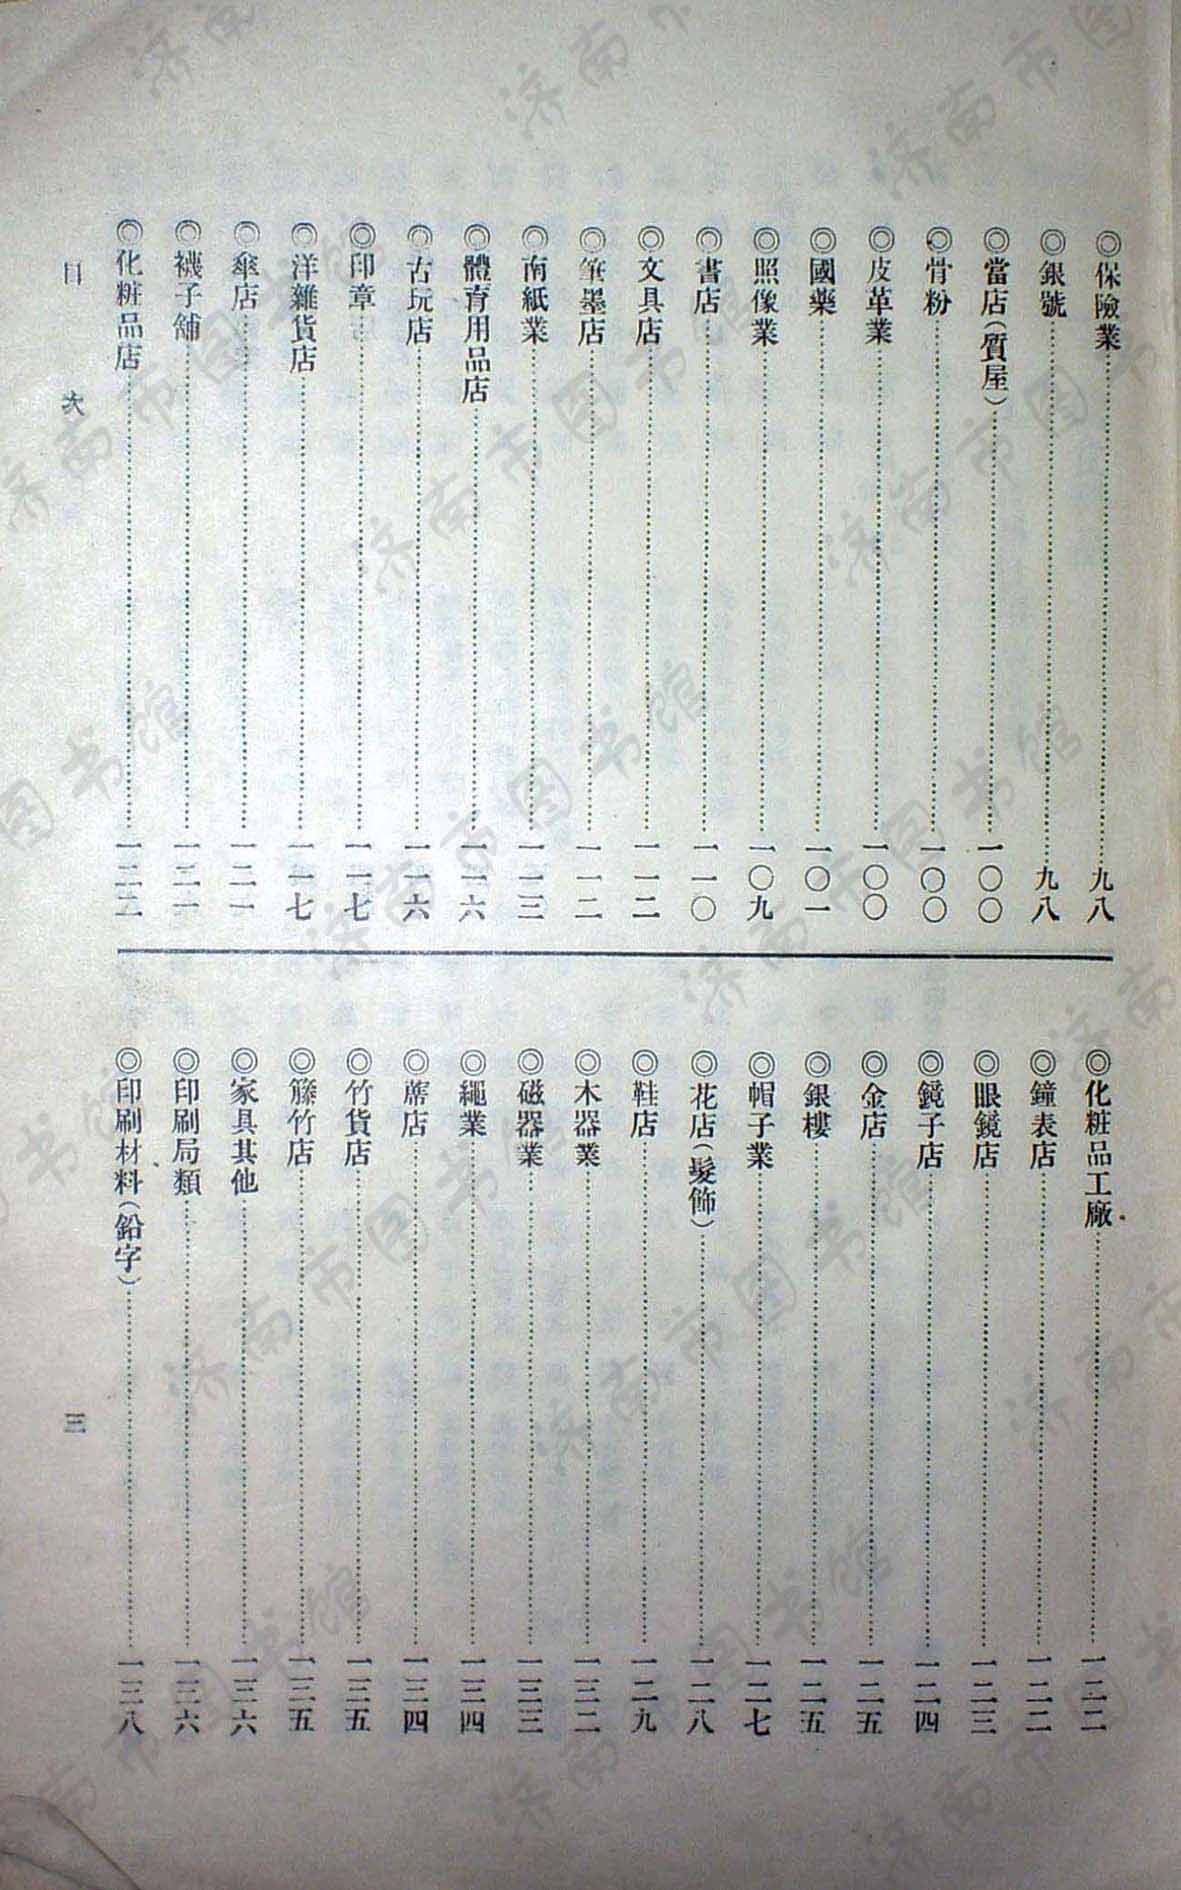 ◎保險業……九八
◎銀號……九八
◎當店(質屋)……一〇〇
◎骨粉……一〇〇
◎皮革業……一〇〇
◎國藥……一〇一
◎照像業……一〇九
◎書店……一一〇
◎文具店……一一二
◎筆墨店……一一二
◎南紙業……一一三
◎體育用品店……一一六
◎古玩店……一一六
◎印章……一一七
◎洋雜貨店……一一七
◎傘店……一二一
◎襪子舖……一二一
◎化粧品店……一二二
◎化粧品工廠……一二二
◎鐘表店……一二二
◎眼鏡店……一二三
◎鏡子店……一二四
◎金店……一二五
◎銀樓……一二五
◎帽子業……一二七
◎花店(髮飾)……一二八
◎鞋店……一二九
◎木器業……一三二
◎磁器業……一三三
◎繩業……一三四
◎蓆店……一三四
◎竹貨店……一三五
◎籐竹店……一三五
◎家具其他……一三六
◎印刷局類……一三六
◎印刷材料(鉛字)……一三八
目次 三
济南市图书馆